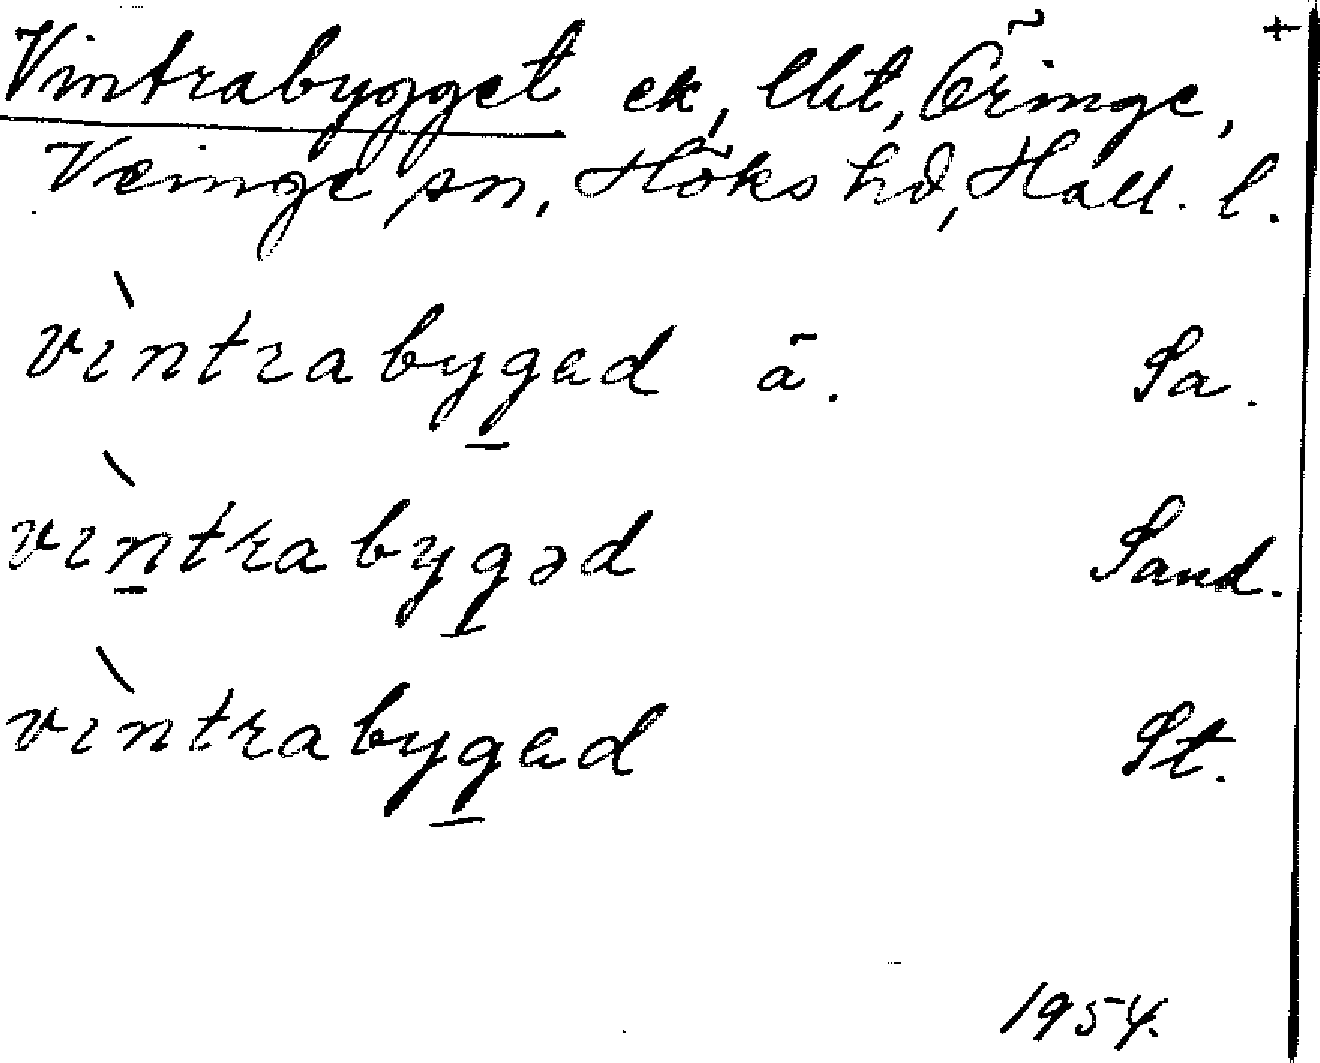 +
Vintrabygget ek, Ubt, Öringe,
Veinge sn, Höks hd, Hall. l.
vìntrabyg̲ad ā. Sa.
vìn̲trabyg̲əd Sand.
vìntrabyg̲ad St.
1954.